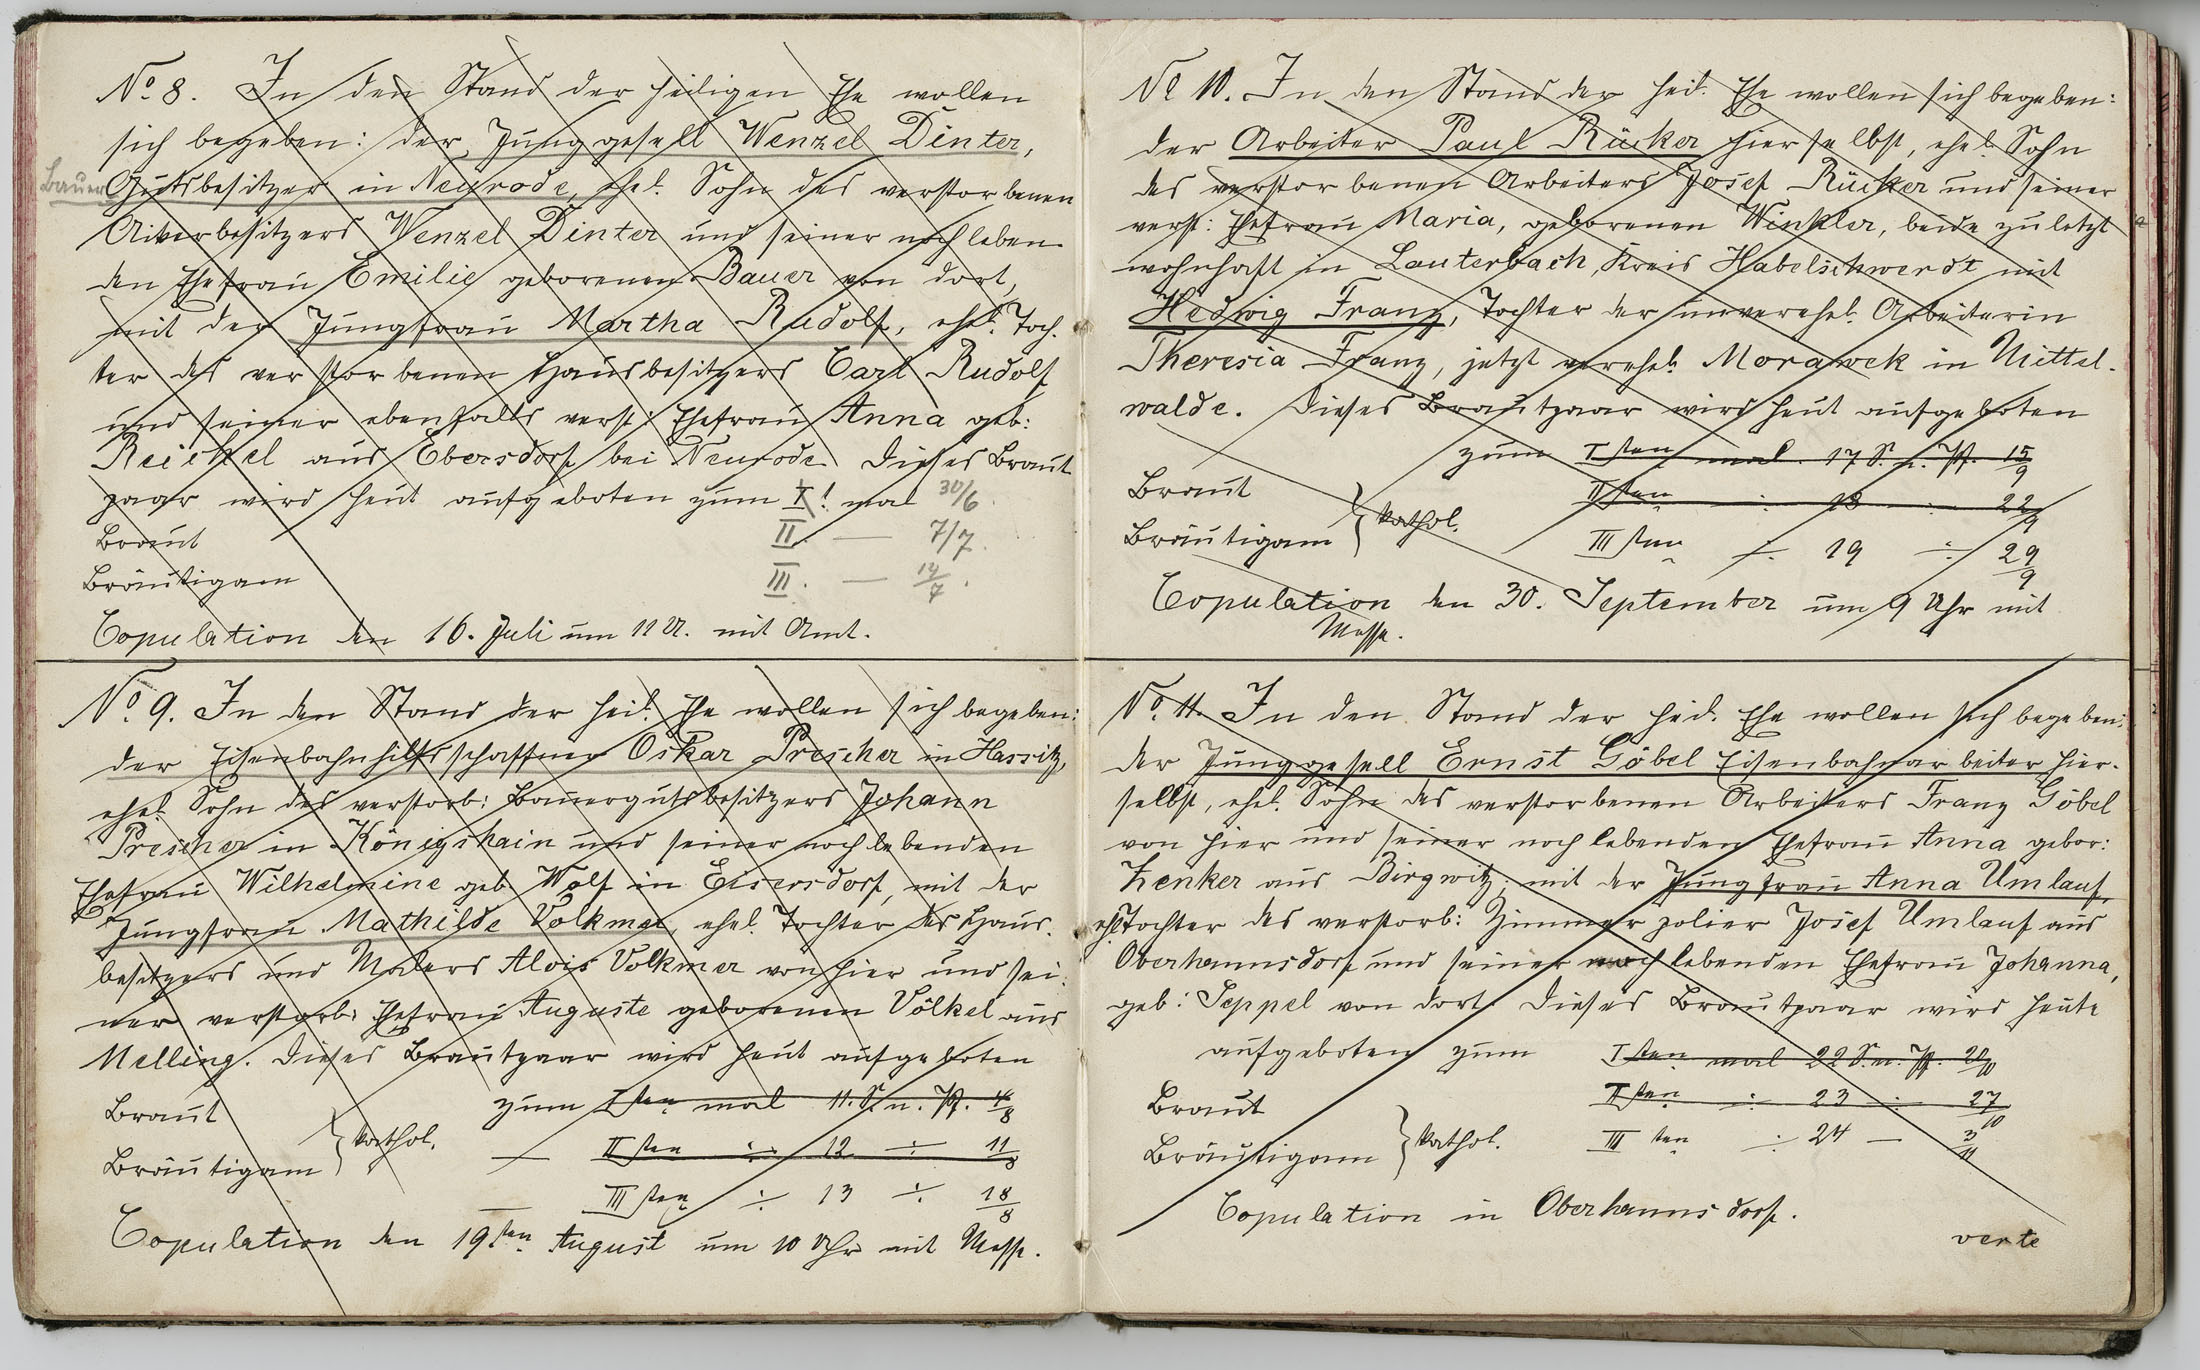 No. 8. In den Stand der heiligen Ehe wollen
sich begeben: der Junggesell Wenzel Dinter,
Bauer Gutsbesitzer in Neurode, ehel. Sohn des verstorbenen
besitzers Wenzel Dinter und seiner noch leben-
den Ehefrau Emilie geborenen Bauer von dort,
mit der Jungfrau Martha Rudolf, ehel. Toch-
ter des verstorbenen Hausbesitzers Carl Rudolf
und seiner ebenfalls verst: Ehefrau Anna geb:
Reichel aus Ebersdorf bei Neurode. Dieses Braut
paar wird heut aufgeboten zum I. mal 30/6
Braut II. — 7/7.
Bräutigam III. — 14/7.
Copulation den 16. Juli um 11 U. mit Amt.
No. 9. In den Stand der heil. Ehe wollen sich begeben:
der Eisenbahnhilfsschaffner Oskar Prescher in Hassitz,
ehel. Sohn des verstorb: Bauergutsbesitzers Johann
Prescher in Königshain und seiner noch lebenden
Ehefrau Wilhelmine geb. Wolf in Eisersdorf, mit der
Jungfrau Mathilde Volkmer, ehel. Tochter des Haus-
besitzers und Malers Alois Volkmer von hier und sei-
ner verstorb: Ehefrau Auguste geborenen Völkel aus
Melling. Dieses Brautpaar wird heut aufgeboten
zum I sten mal 11. S. n. Pf. 4/8
Braut
Bräutigam } kathol. — II sten ÷ 12 ÷ 11/8
III sten ÷ 13 ÷ 18/8
Copulation den 19ten August um 10 Uhr mit Messe.
No 10. In den Stand der heil. Ehe wollen sich begeben:
der Arbeiter Paul Rücker hierselbst, ehel. Sohn
des verstorbenen Arbeiters Josef Rücker und seiner
verst: Ehefrau Maria, geborenen Winkler, beide zuletzt
wohnhaft in Lauterbach, Kreis Habelschwerdt mit
Hedwig Franz, Tochter der unverehel. Arbeiterin
Theresia Franz, jetzt verehel. Morawek in Mittel-
walde. Dieses Brautpaar wird heut aufgeboten
zum I sten mal. 17 S. n. Pf. 15/9
Braut II sten : 18 : 22/9
Bräutigam } kathol. III sten ÷ 19 ÷ 29/9
Copulation den 30. September um 9 Uhr mit
Messe.
No. 11. In den Stand der heil. Ehe wollen sich begeben:
der Junggesell Ernst Göbel Eisenbahnarbeiter hier-
selbst, ehel. Sohn des verstorbenen Arbeiters Franz Göbel
von hier und seiner noch lebenden Ehefrau Anna gebor:
Zenker aus Birgwitz; mit der Jungfrau Anna Umlauf,
ehl Tochter des verstorb: Zimmerpolier Josef Umlauf aus
Oberhannsdorf und seiner noch lebenden Ehefrau Johanna,
geb: Seppel von dort. Dieses Brautpaar wird heute
aufgeboten zum I sten mal 22 S. n. Pf. 20/10
Braut II sten ÷ 23 ÷ 27/10
Bräutigam } kathol. III ten ÷ 24 — 3/11
Copulation in Oberhannsdorf.
verte